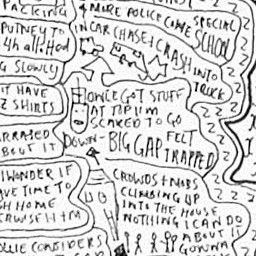 PACKING
PUTNEY TO
G SLOWLY
T HAVE
Z SHIRTS
BOUT IT
I WONDER IF
AVE TIME TO
H HOME
OLLIE CONSIDERS
& MORE POLICE COME
IN CAR CHASE & CRASH INTO
TRUCK
SPECIAL
SCHOOL
ONCE GOT STUFF
AT TOP I'M
SCARED TO GO
DOWN - BIG GAP FELT
TRAPPED
CROWDS + MOBS
CLIMBING UP
INTO THE HOUSE
NOTHING I CAN DO
ABOUT IT
GONNA
Z Z Z Z Z Z